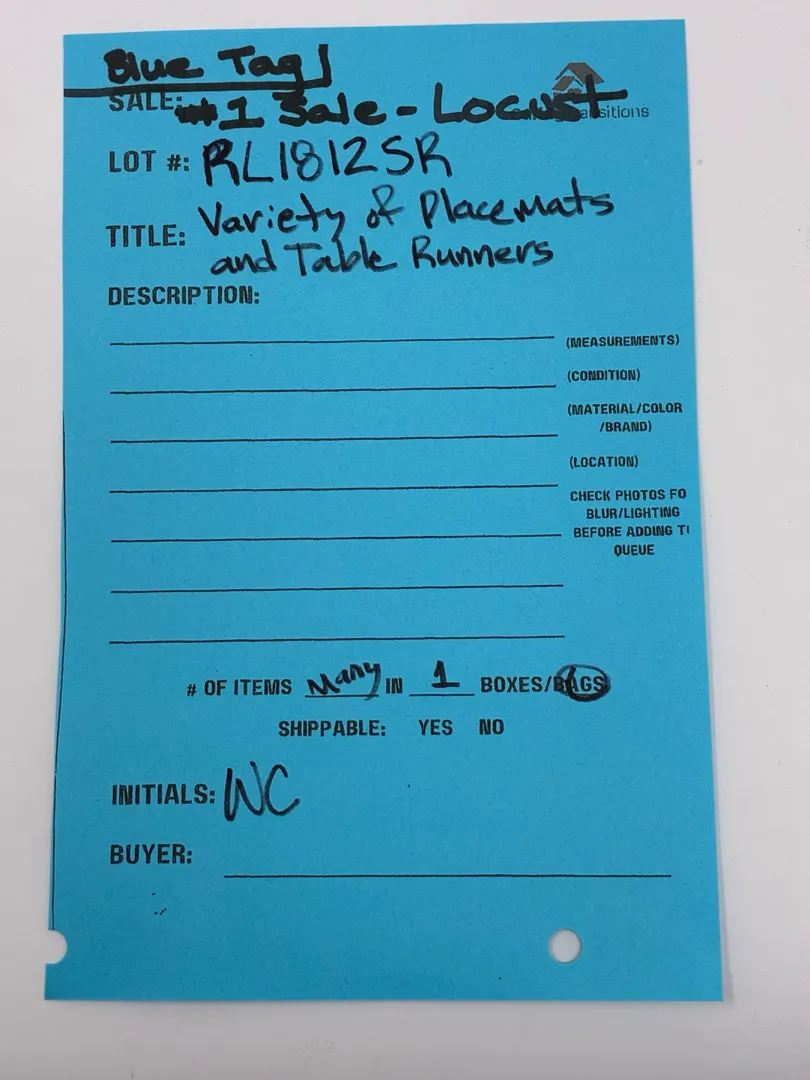 Blue Tag
SALE: #1 Sale - Locust
sitions
LOT #: RL1812SR
TITLE: Variety of Placemats
and Table Runners
DESCRIPTION:
(MEASUREMENTS)
(CONDITION)
(MATERIAL/COLOR
/BRAND)
(LOCATION)
CHECK PHOTOS FO
BLUR/LIGHTING
BEFORE ADDING T
QUEUE
# OF ITEMS Many IN 1 BOXES/BAGS
SHIPPABLE: YES NO
INITIALS: WC
BUYER: